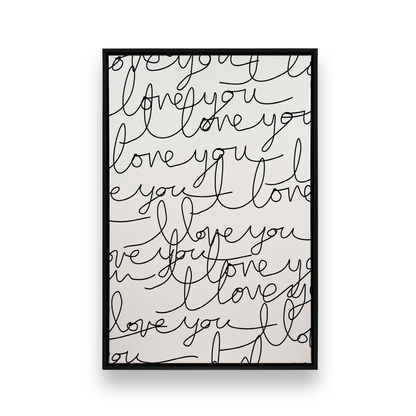 love you I lo
love you
I love you
love you
e you I love
I love you
ove you I love yo
I love y
love you I lo
you